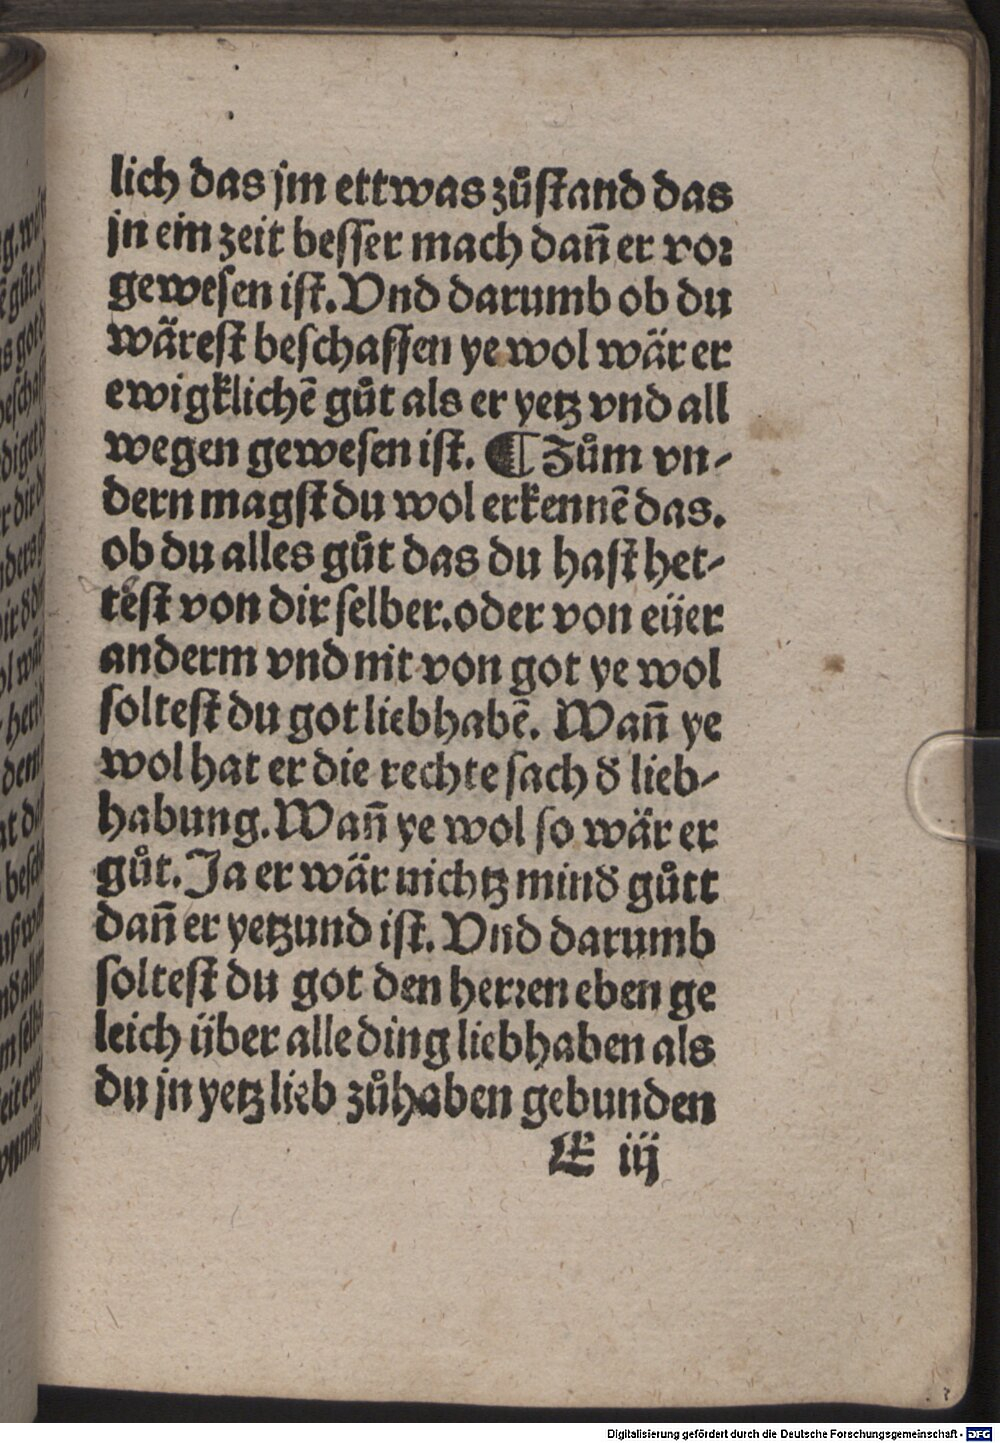 lich das jm ettwas zůſtand das
jn ein zeit beſſer mach dañ er voꝛ
geweſen iſt. Vnd darumb ob du
wäreſt beſchaffen ye wol wär er
ewigklichē gůt als er yetz vnd all
wegen geweſen iſt. ¶ Zům vn-
dern magſt du wol erkennē das.
ob du alles gůt das du haſt het-
teſt von dir ſelber. oder von eüer
anderm vnd nit von got ye wol
ſolteſt du got liebhabē. Wañ ye
wol hat er die rechte ſach ð lieb-
habung. Wañ ye wol ſo wär er
gůt. Ja er wär nichtz mind gůtt
dañ er yetzund iſt. Vnd darumb
ſolteſt du got den herꝛen eben ge
leich über alle ding liebhaben als
du jn yetz lieb zůhaben gebunden
E iij
Digitalisierung gefördert durch die Deutsche Forschungsgemeinschaft - DFG